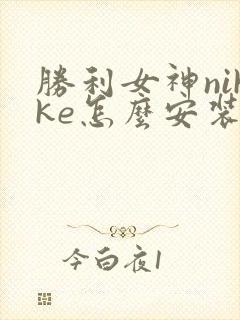 勝利女神nik
ke怎麼安裝
今白夜1